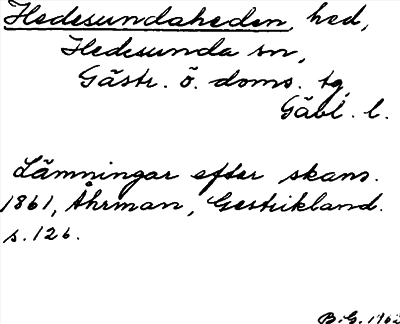 Hedesundaheden, hed,
Hedesunda sn,
Gästr. ö. doms. tg,
Gävl. l.
Lämningar efter skans.
1861, Åhrman, Gestrikland.
s. 126.
B.G. 1962